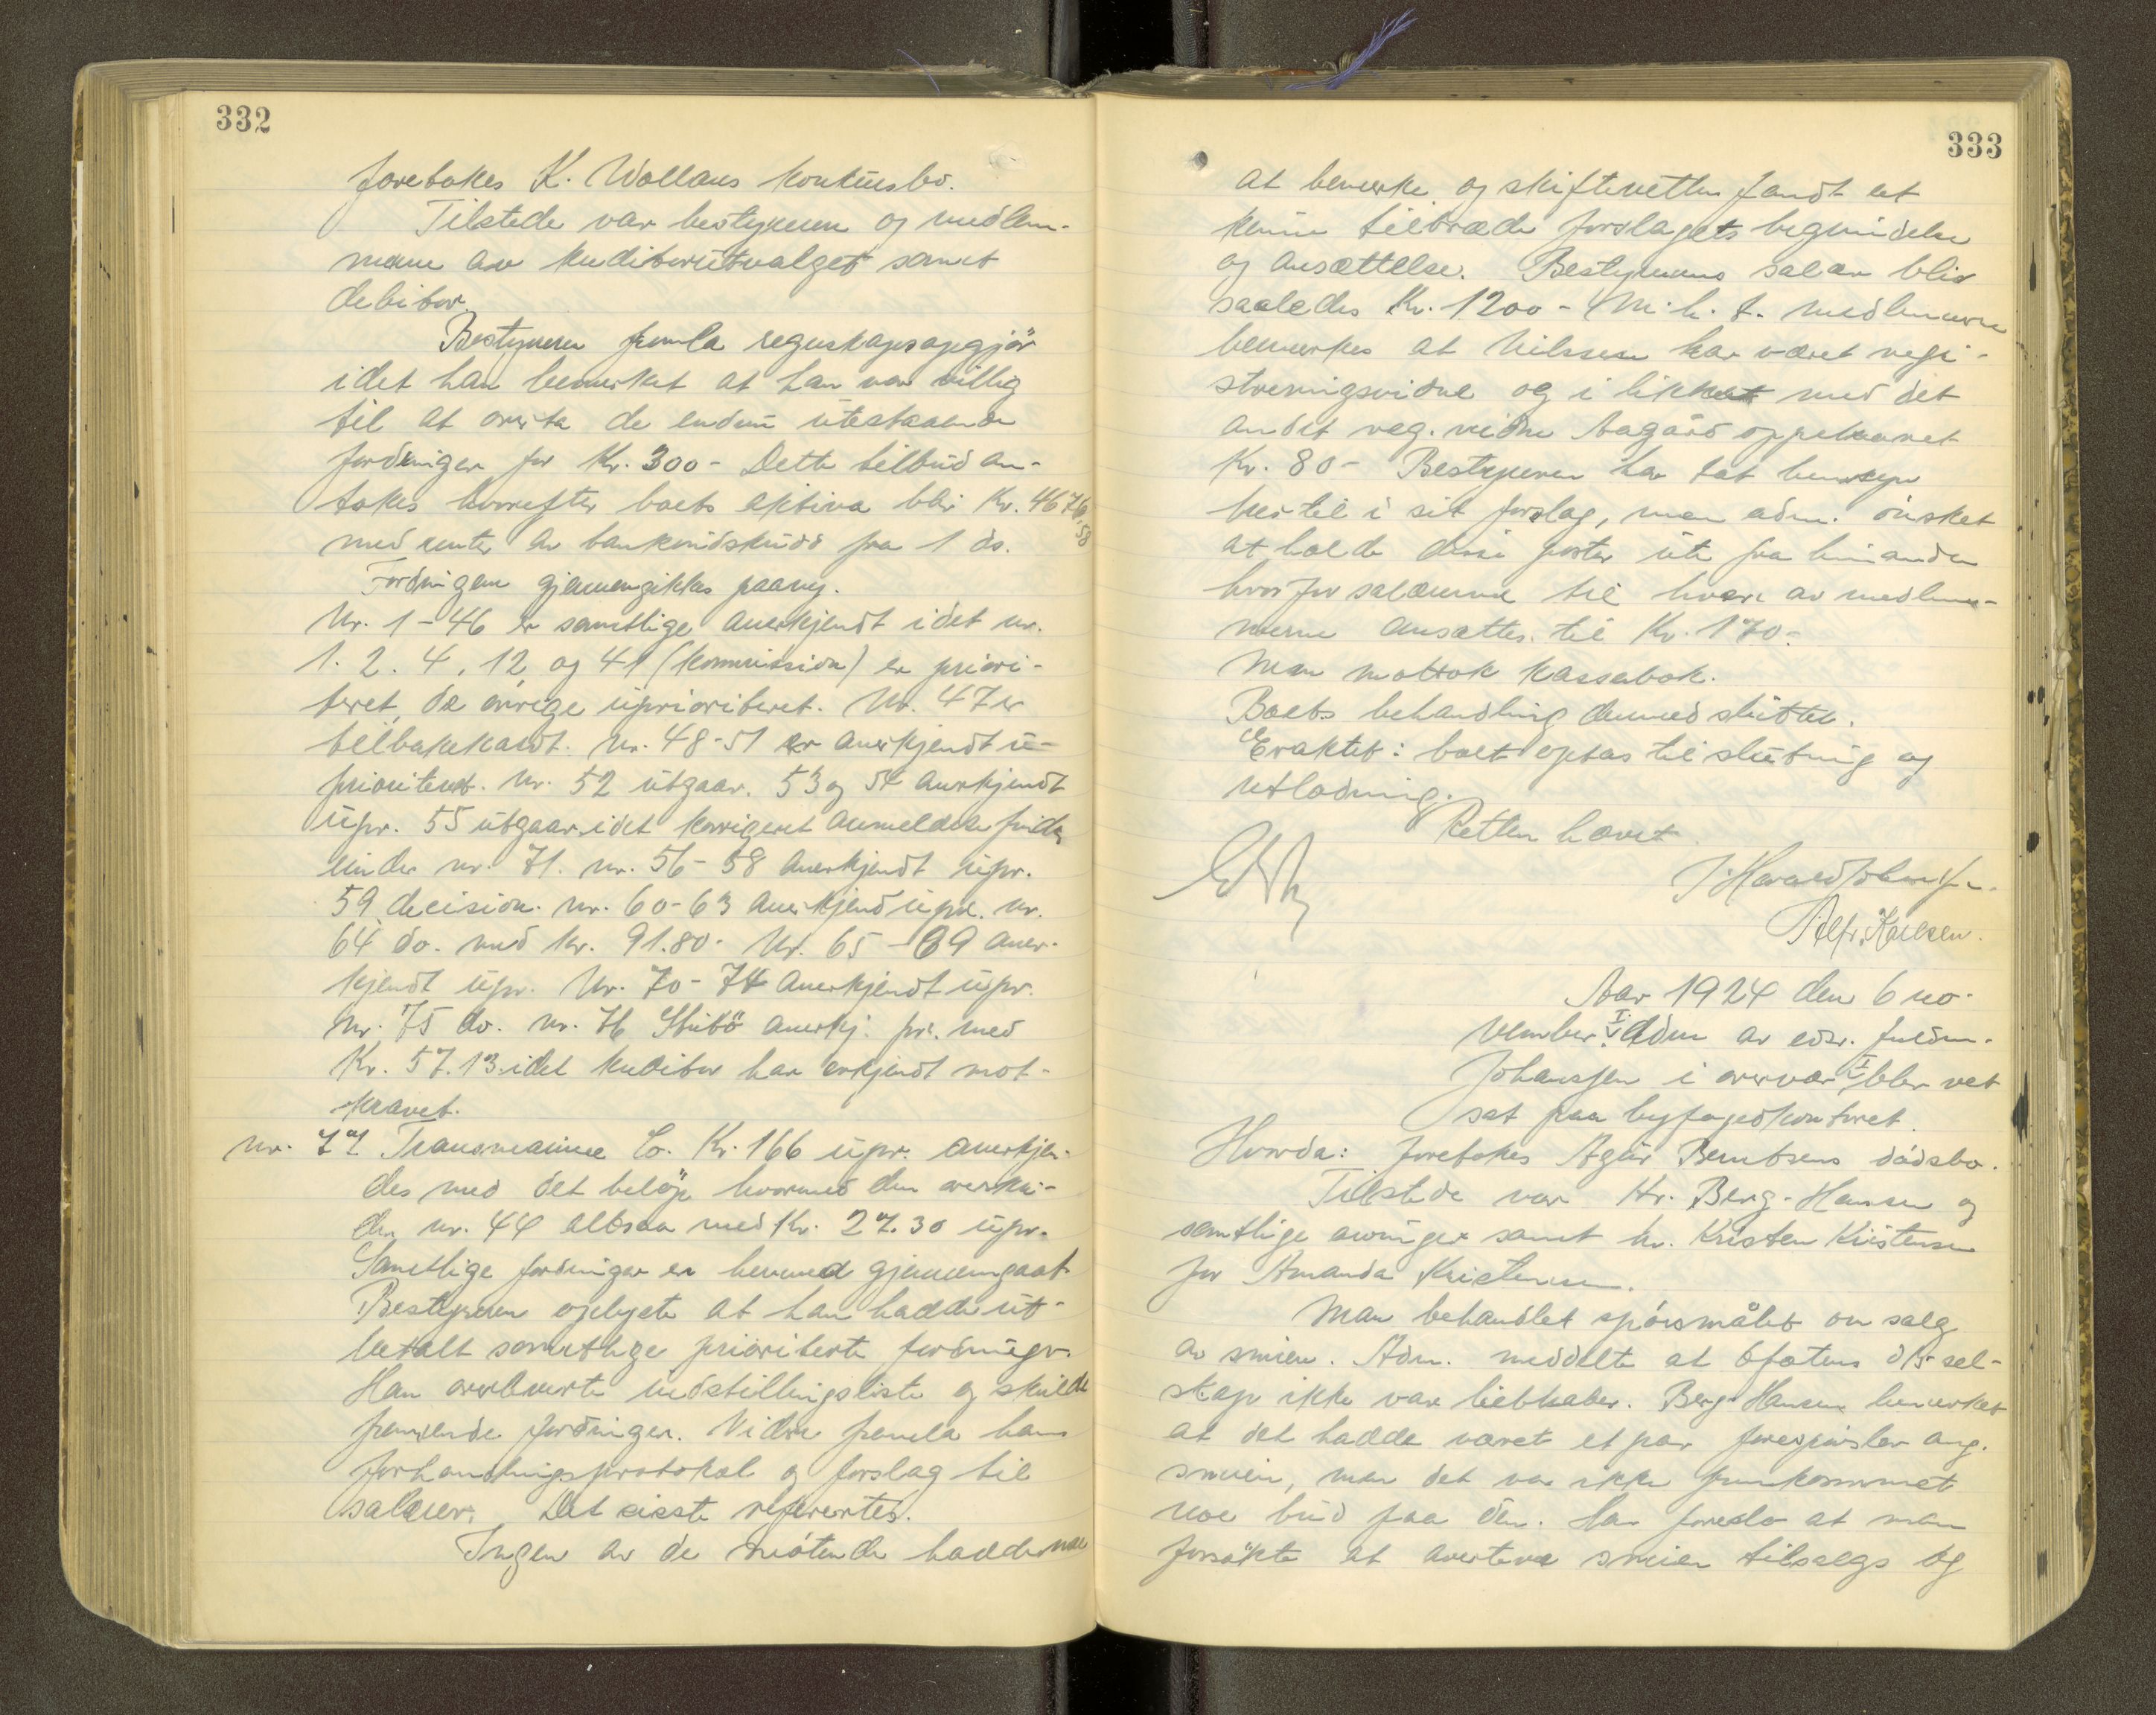 332
foretokes K. Wollans konkursbo.
Tilstede var bestyreren og medlem-
mene av kreditorutvalget samt
debitor.
Bestyreren fremla regnskapsopgjör
idet han bemerket at han var villig
til at overta de endnu utestaaende
fordringer for Kr. 300- Dette tilbud an-
tokes hvorefter boets aktiva blir Kr. 4676,58
med renter av bankindskudd fra 1 ds.
Fordringene gjennemgikkes paany.
Nr. 1-46 er samtlige anerkjendt idet nr.
1. 2. 4, 12, og 41 (kommission) er priori-
teret, de övrige uprioriteret. Nr. 47 er
tilbakekaldt. Nr. 48-51 er anerkjendt u-
prioriteret. Nr. 52 utgaar. 53 og 54 anerkjendt
upr. 55 utgaar idet korrigeret anmeldelse findes
under nr. 71. nr. 56-58 anerkjendt upr.
59 decision. nr. 60-63 anerkjend upr. nr.
64 do. med kr. 91.80. Nr. 65-69 aner-
kjendt upr. Nr. 70-74 anerkjendt upr.
Nr. 75 do. nr. 76 Stubö anerkj. pr. med
Kr. 57.13 idet kreditor har erkjendt mot-
kravet.
Nr. 77 Transmarine Co. Kr. 166 upr. anerkjen-
des med det belöp hvormed den overski-
der nr. 44 altsaa med Kr. 27.30 upr.
Samtlige fordringer er hermed gjennemgaat.
Bestyreren oplyste at han hadde ut-
betalt samtlige prioriterte fordringer.
Han overleverte indstillingsliste og skilde
fordringer. Videre fremla han
forhandlingsprotokol og forslag til
salærer. Det sisste referertes.
Ingen av de mötende hadde noe
333
at bemerke og skifteretten fandt at
kunne tiltræde forslagets begrundelse
og ansættelse. Bestyrerens salær blir
saaledes Kr. 1200- M.h.t. medlemmerne
bemerkes at Nilssen har været regi-
streringsvidne og i likhet med det
andet reg. vidne Aagård oppebaaret
Kr. 80- Bestyreren har tat hensyn
hertil i sit forslag, men adm. önsket
at holde disse poster ute fra hinanden
hvorfor salærerne til hver av medlem-
merne ansættes til Kr. 170-
Man mottok kassabok.
Boets behandling dermed sluttet.
Eraktet: boet optas til slutning og
utlodning.
Retten hævet
J. Harald Johansen.
Alfr. Karlsen.
Aar 1924 den 6 no-
vember. Adm av edsv. fuldm.
Johanssen i overvær blev ret
sat paa byfogedkontoret.
Hvorda: foretokes Agur Berntsens dödsbo.
Tilstede var Hr. Berg-Hansen og
samtlige arvinger samt hr. Kristen Kristensen
for Amanda Kristensen.
Man behandlet spörsmålet om salg
av smien. Adm. meddelte at Ofotens D/S sel-
skap ikke var liebhaber. Berg-Hansen bemerket
at det hadde været et par forespörsler ang.
smien, men det var ikke fremkommet
noe bud paa den. Han foreslo at man
forsökte at avertere smien tilsalgs og